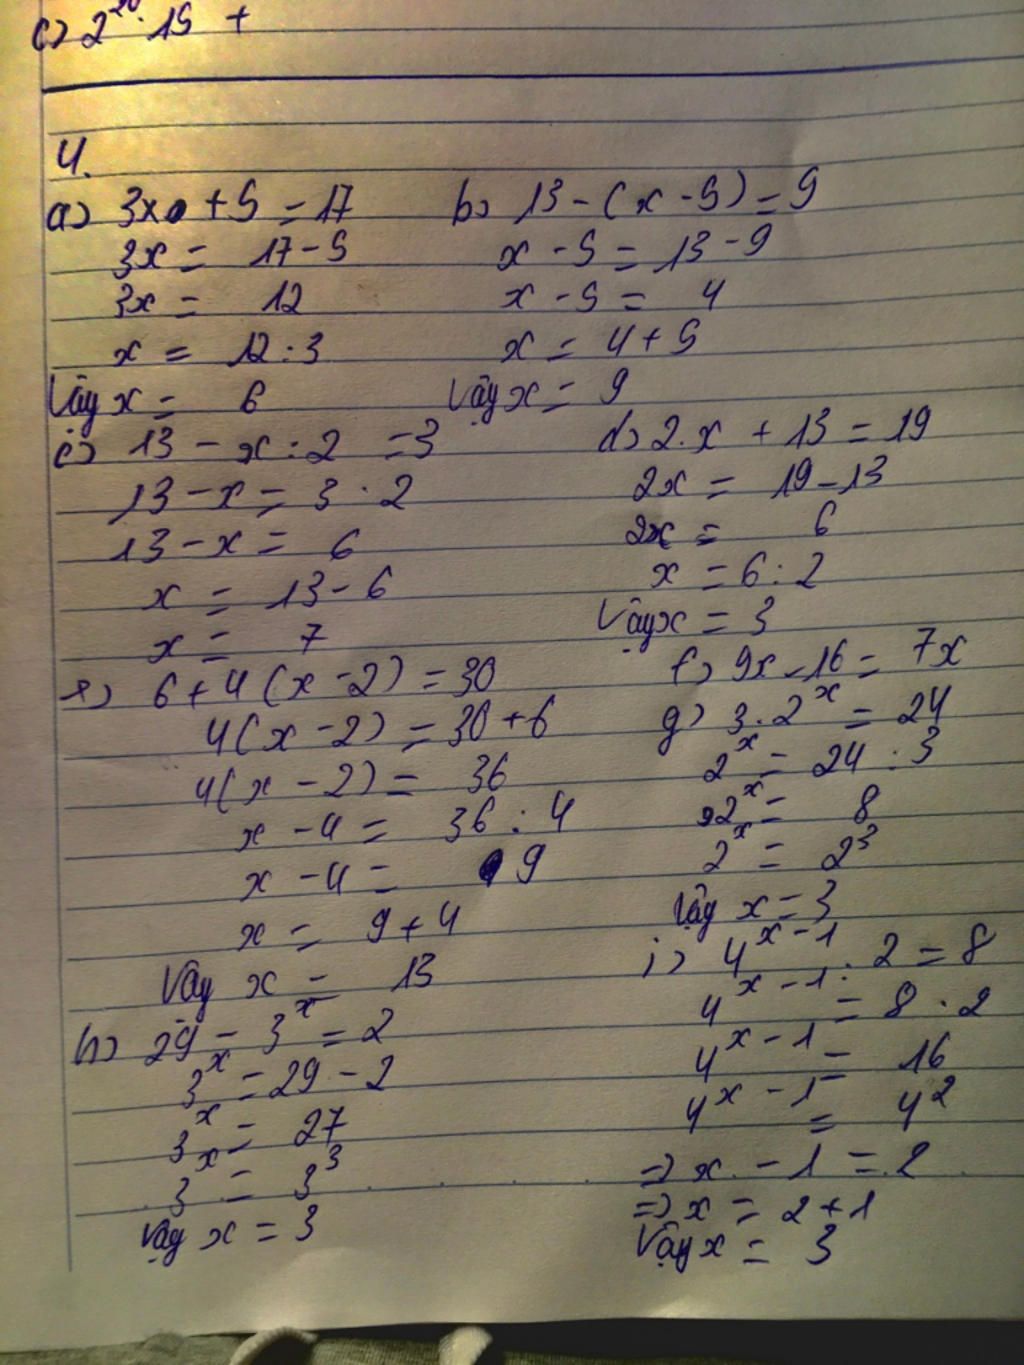 c) 2^20 . 15 +
4.
a) 3x + 5 = 17
3x = 17 - 5
3x = 12
x = 12 : 3
Vậy x = 6
b) 13 - (x - 5) = 9
x - 5 = 13 - 9
x - 5 = 4
x = 4 + 5
Vậy x = 9
c) 13 - x : 2 = 3
13 - x = 3 . 2
13 - x = 6
x = 13 - 6
x = 7
d) 2.x + 13 = 19
2x = 19 - 13
2x = 6
x = 6 : 2
Vậy x = 3
e) 6 + 4 (x - 2) = 30
4(x - 2) = 30 + 6
4(x - 2) = 36
x - 4 = 36 : 4
x - 4 = 9
x = 9 + 4
Vậy x = 13
f) 9x - 16 = 7x
g) 3.2^x = 24
2^x = 24 : 3
2^x = 8
2^x = 2^3
Vậy x = 3
h) 29 - 3^x = 2
3^x = 29 - 2
3^x = 27
3^x = 3^3
Vậy x = 3
i) 4^x-1 : 2 = 8
4^x-1 = 8 . 2
4^x-1 = 16
4^x-1 = 4^2
=> x - 1 = 2
=> x = 2 + 1
Vậy x = 3